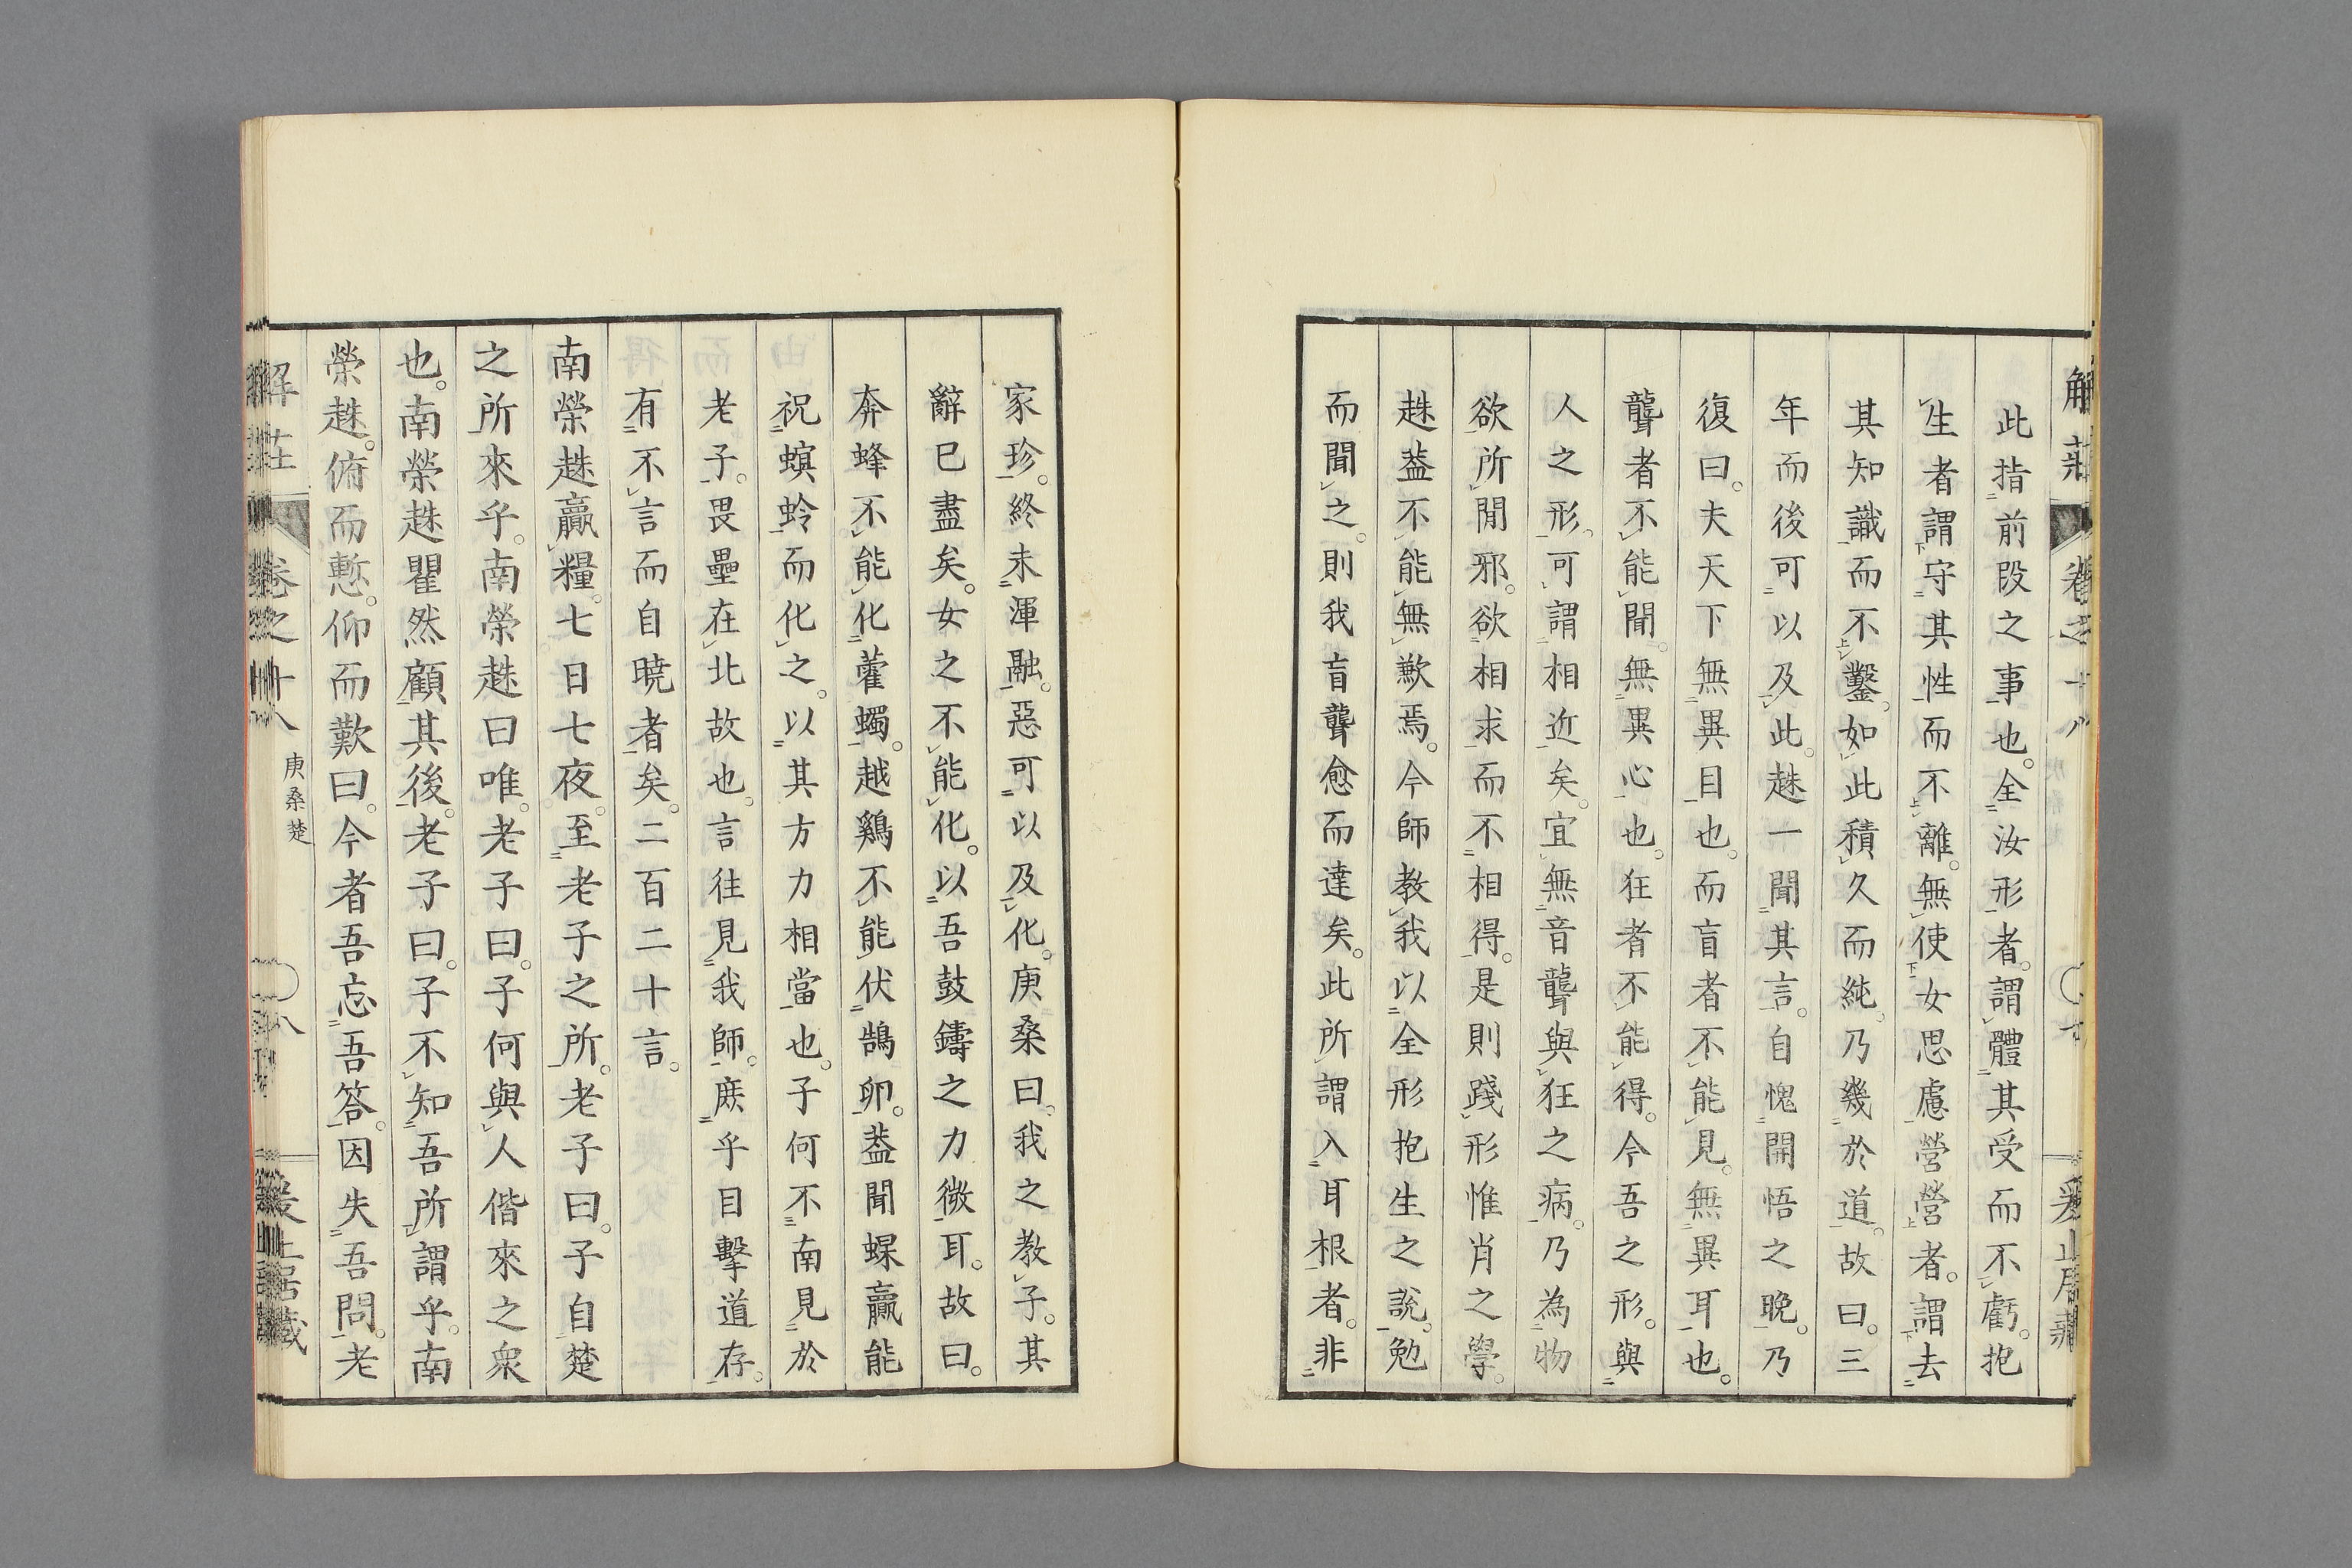 此指前段之事也。全汝形者。謂體其受而不虧。抱
生者謂守其性而不離。無使女思慮營營者。謂去
其知識而不鑿。如此積久而純。乃幾於道。故曰。三
年而後可以及此。趎一聞其言。自愧開悟之晚。乃
復曰。夫天下無異目也。而盲者不能見。無異耳也。
聾者不能聞。無異心也。狂者不能得。今吾之形。與
人之形。可謂相近矣。宜無音聾與狂之病。乃為物
欲所閒邪。欲相求而不相得。是則踐形惟肖之學。
趎葢不能無歉焉。今師教我以全形抱生之說。勉
而聞之。則我盲聾愈而達矣。此所謂入耳根者。非
家珍。終未渾融。惡可以及化。庚桑曰。我之教子。其
辭已盡矣。女之不能化。以吾鼓鑄之力微耳。故曰。
奔蜂不能化藿蠋。越鷄不能伏鵠卵。葢聞蜾蠃能
祝螟蛉而化之。以其方力相當也。子何不南見於
老子。畏壘在北故也。言往見我師。庶乎目擊道存。
有不言而自曉者矣。二百二十言。
南榮趎贏糧。七日七夜。至老子之所。老子曰。子自楚
之所來乎。南榮趎曰唯。老子曰。子何與人偕來之衆
也。南榮趎瞿然顧其後。老子曰。子不知吾所謂乎。南
榮趎。俯而慙。仰而歎曰。今者吾忘吾答。因失吾問。老
解莊 卷之十八 庚桑楚 八